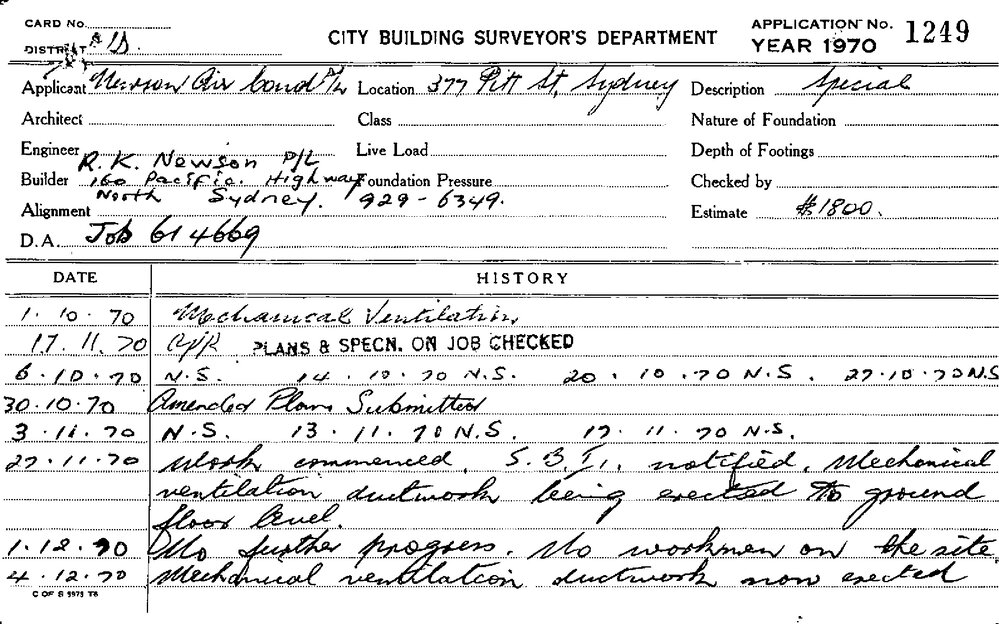 CARD No.
DISTRICT
CITY BUILDING SURVEYOR'S DEPARTMENT
APPLICATION No. 1249
YEAR 1970
Applicant Newson Air Cond P/L Location 377 Pitt St, Sydney Description Special
Architect Class Nature of Foundation
Engineer R. K. Newson P/L Live Load Depth of Footings
Builder 160 Pacific Highway Foundation Pressure Checked by
North Sydney. 929-6349.
Alignment Estimate $1800.
D.A. Job 614669
DATE HISTORY
1.10.70 Mechanical Ventilation
17.11.70 PLANS & SPECN. ON JOB CHECKED
6.10.70 N.S. 14.10.70 N.S. 20.10.70 N.S. 27.10.70 N.S
30.10.70 Amended Plans Submitted
3.11.70 N.S. 13.11.70 N.S. 17.11.70 N.S.
27.11.70 Work commenced. notified. Mechanical
ventilation ductwork being erected to ground
floor level.
1.12.70 No further progress. No workmen on the site.
4.12.70 Mechanical ventilation ductwork now erected
C OF S 5975 T8